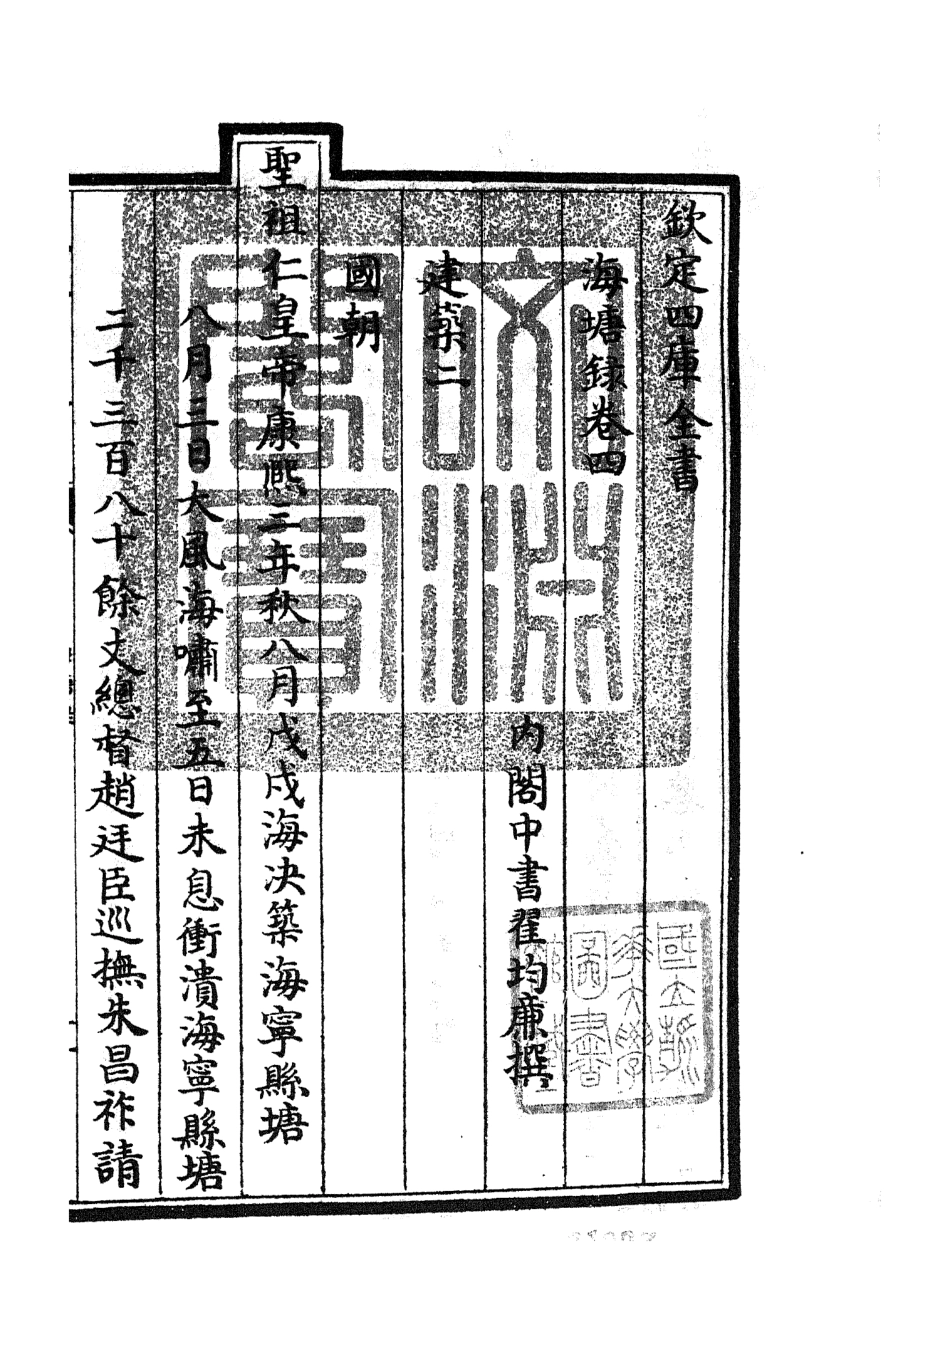 欽定四庫全書
海塘録卷四
内閣中書翟均廉撰
建築二
國朝
聖祖仁皇帝康熙三年秋八月戊戌海决築海寧縣塘
八月三日大風海嘯至五日未息衝潰海寧縣塘
二千三百八十餘丈總督趙廷臣巡撫朱昌祚請
文淵
閣寶
國立浙
江大學
圖書